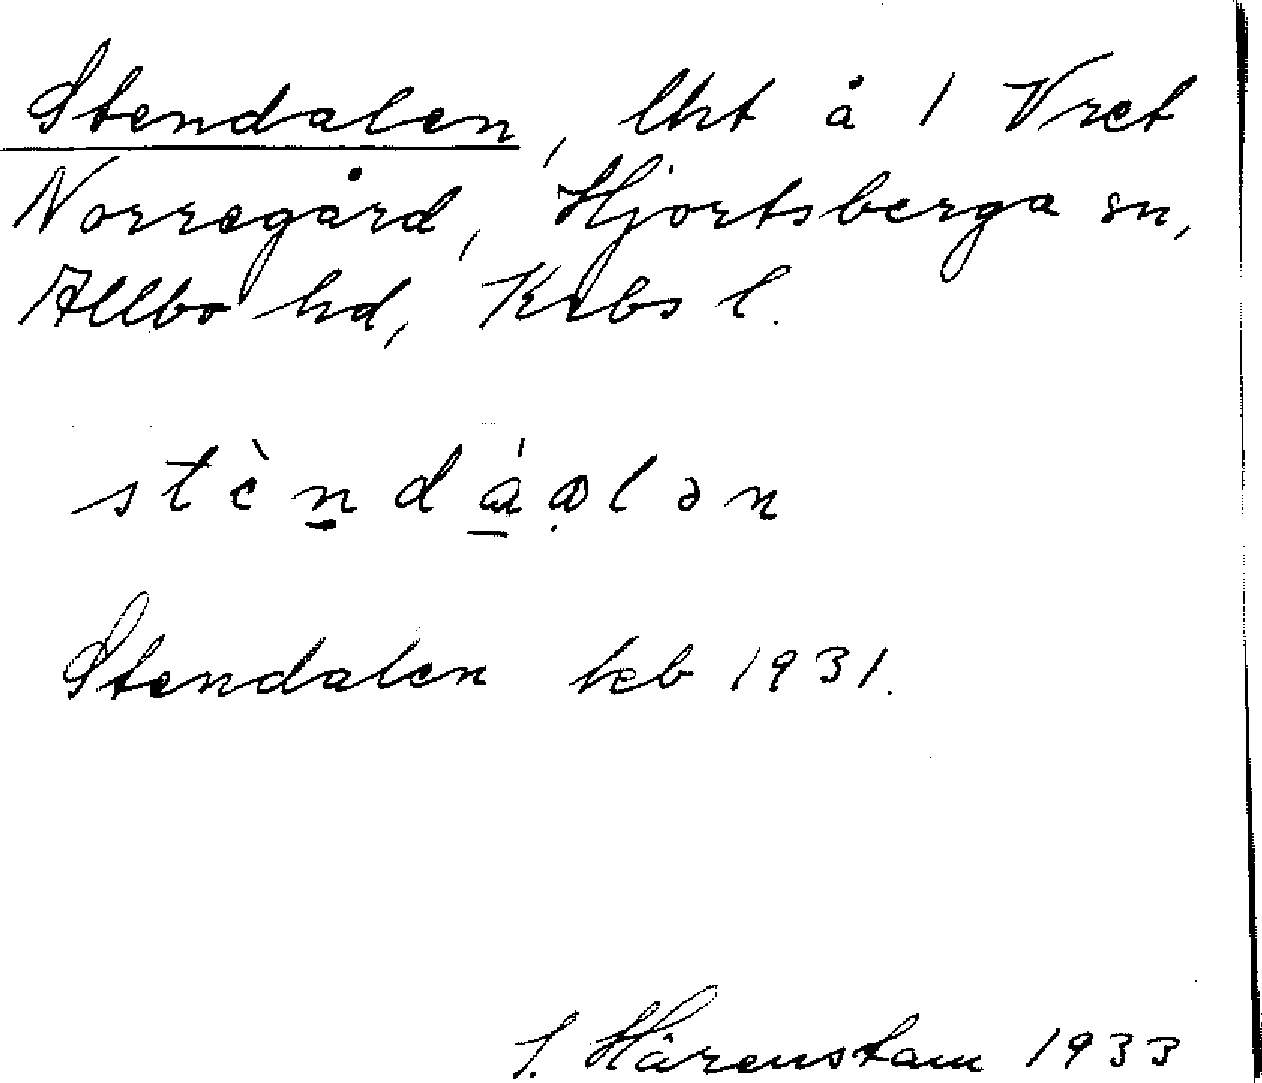 Stendalen, lht å 1 Vret
Norregård, Hjortsberga sn,
Allbo hd, Krbs l.
stèn̲dá̲ạlən
Stendalen kcb 1931.
S. Härenstam 1933